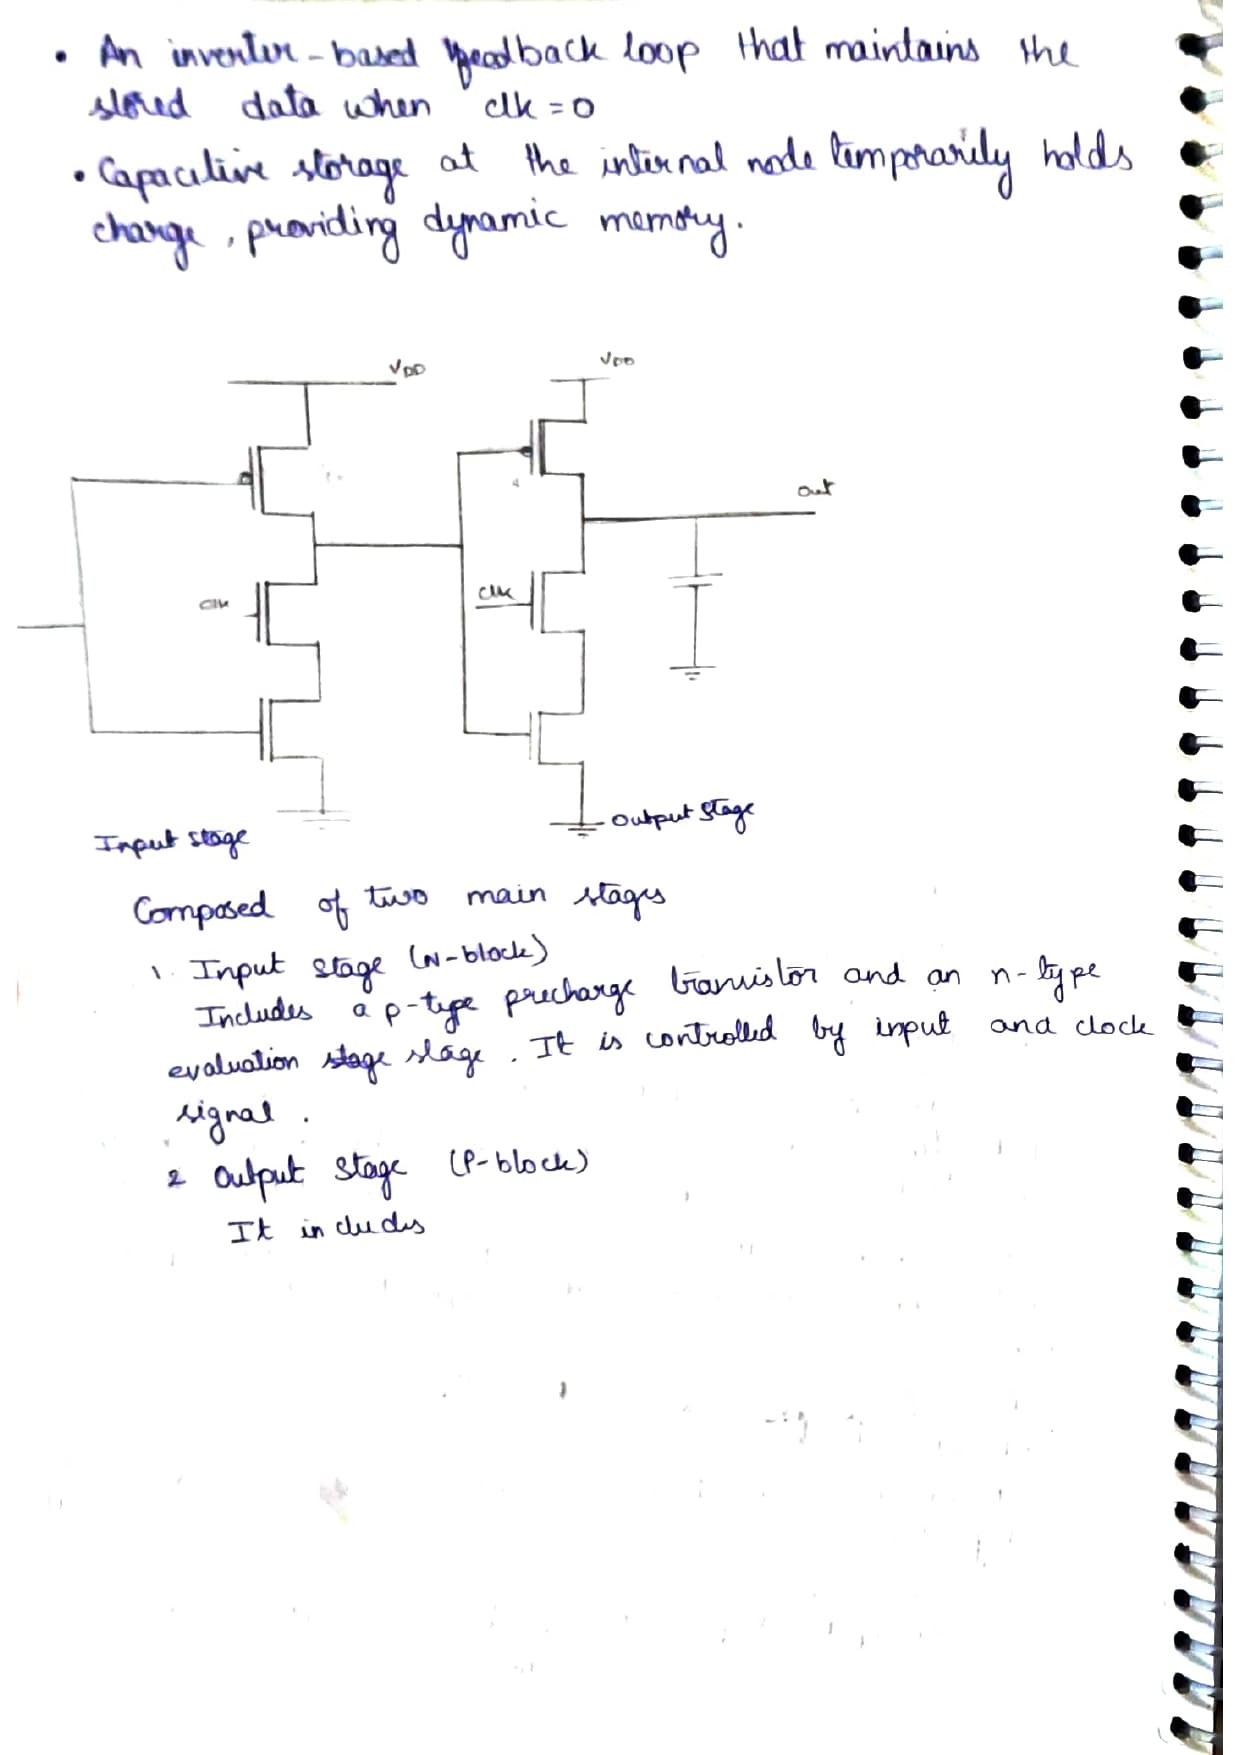 • An inverter-based feedback loop that maintains the
stored data when clk = 0
• Capacitive storage at the internal node temporarily holds
charge, providing dynamic memory.
VDD
VDD
out
Clk
Clk
Output Stage
Input stage
Composed of two main stages
1. Input stage (N-block)
Includes a p-type precharge transistor and an n-type
evaluation stage stage. It is controlled by input and clock
signal.
2 Output Stage (P-block)
It includes